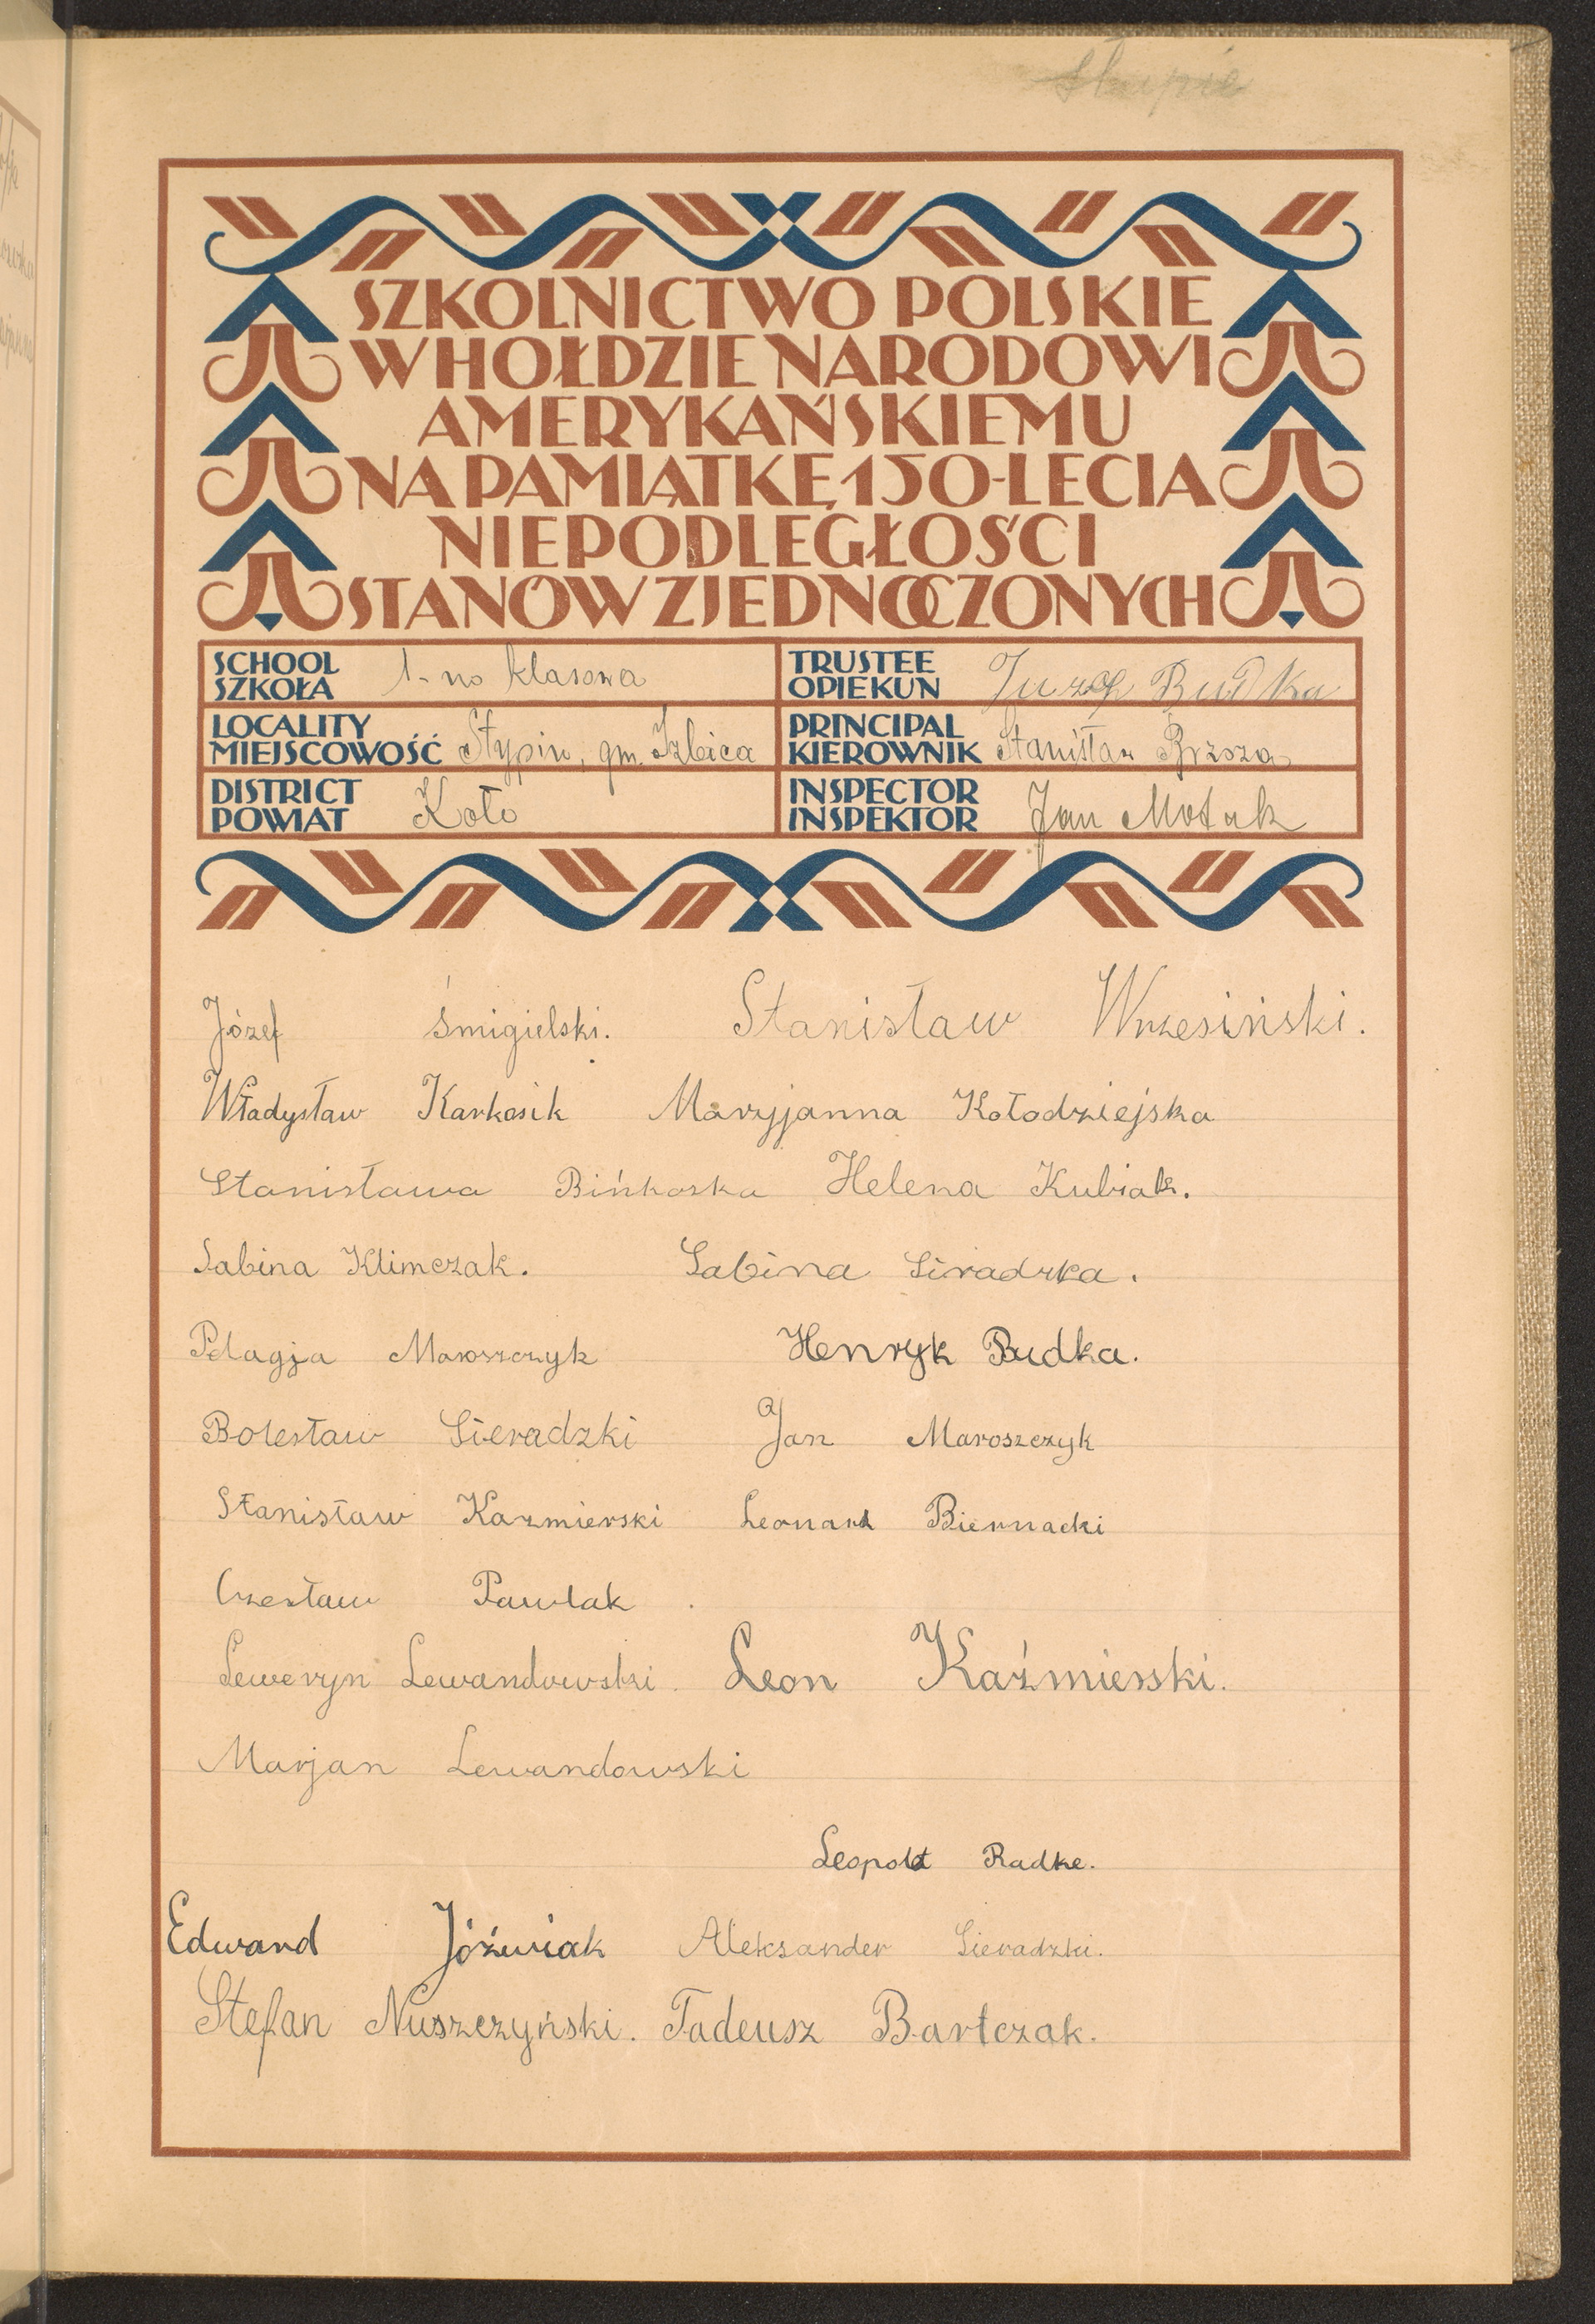 SZKOLNICTWO POLSKIE
W HOŁDZIE NARODOWI
AMERYKAŃSKIEMU
NA PAMIĄTKĘ 150-LECIA
NIEPODLEGŁOŚCI
STANÓW ZJEDNOCZONYCH
SCHOOL SZKOŁA 1-no klasowa
TRUSTEE OPIEKUN Juzef Budka
LOCALITY MIEJSCOWOŚĆ Stypin, gm. Izbica
PRINCIPAL KIEROWNIK Stanisław Brzoza
DISTRICT POWIAT Koło
INSPECTOR INSPEKTOR Jan Motak
Józef Śmigielski. Stanisław Wrzesiński.
Władysław Karkosik Maryjanna Kołodziejska
Stanisława Bińkoska Helena Kubiak.
Sabina Klimczak. Sabina Siradzka.
Pelagja Maroszczyk Henryk Budka.
Bolesław Sieradzki Jan Maroszczyk
Stanisław Kazmierski Leonard Biernacki
Czesław Pawlak.
Seweryn Lewandowski. Leon Kaźmierski.
Marjan Lewandowski
Leopold Radke.
Edward Jóźwiak Aleksander Sieradzki.
Stefan Nuszczyński. Tadeusz Bartczak.